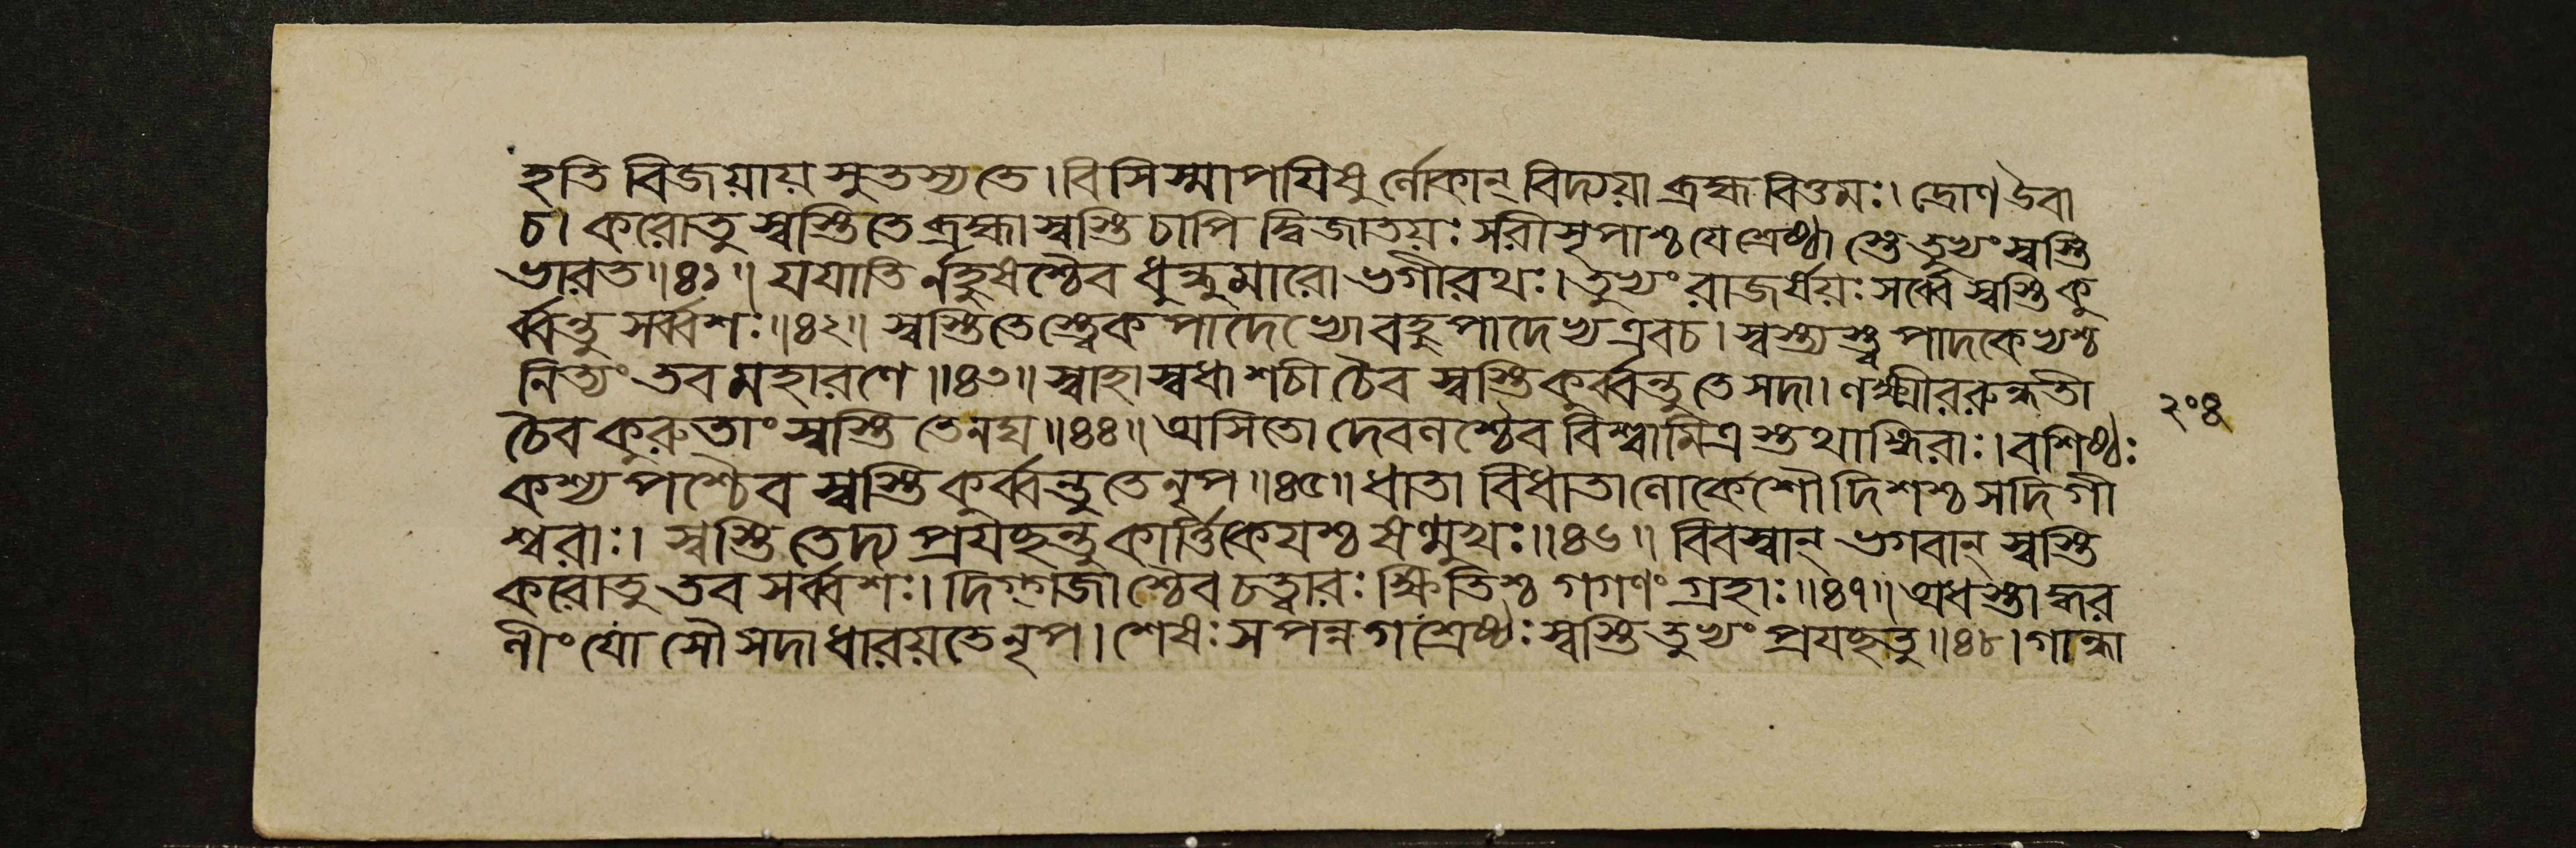 হতি বিজয়ায় সুতস্যতে। বিসিস্মাপযিষুর্লোকান্ বিদ্যয়া ব্রহ্ম বিত্তমঃ। দ্রোণ উবা
চ। করোতু স্বস্তি তে ব্রহ্মা স্বস্তি চাপি দ্বিজাতয়ঃ সরীসৃপাশ্চ যে শ্রেষ্ঠা স্তে তুভ্যং স্বস্তি
ভারত॥৪১॥ যযাতি র্নহুষশ্চৈব ধুন্ধুমারো ভগীরথঃ। তুভ্যং রাজর্ষয়ঃ সর্ব্বে স্বস্তি কু
র্ব্বন্তু সর্ব্বশঃ॥৪২॥ স্বস্তি তে স্ত্বেক পাদেভ্যো বহু পাদেভ্য এবচ। স্বস্ত্যস্ত্ব পাদকেভ্যশ্চ
নিত্যং তব মহারণে॥৪৩॥ স্বাহা স্বধা শচী চৈব স্বস্তি কুর্ব্বন্তু তে সদা। লক্ষ্মীররুন্ধতী
চৈব কুরুতাং স্বস্তি তেনঘ॥৪৪॥ অসিতো দেবলশ্চৈব বিশ্বামিত্র স্তথাঙ্গিরাঃ। বশিষ্ঠঃ
কশ্যপশ্চৈব স্বস্তি কুর্ব্বন্তু তে নৃপ॥৪৫॥ ধাতা বিধাতা লোকেশৌ দিশশ্চ সদিগী
শ্বরাঃ। স্বস্তি তেদ্য প্রযচ্ছন্তু কার্ত্তিকেযশ্চ ষণ্মুখঃ॥৪৬॥ বিবস্বান্ ভগবান্ স্বস্তি
করোতু তব সর্ব্বশঃ। দিগ্গজাশ্চৈব চত্বারঃ ক্ষিতিশ্চ গগণং গ্রহাঃ॥৪৭॥ অধস্তাদ্ধর
নীং যো সৌ সদা ধারয়তে নৃপ। শেষঃ স পন্নগ শ্রেষ্ঠঃ স্বস্তি তুভ্যং প্রযচ্ছতু॥৪৮। গান্ধা
২০৪